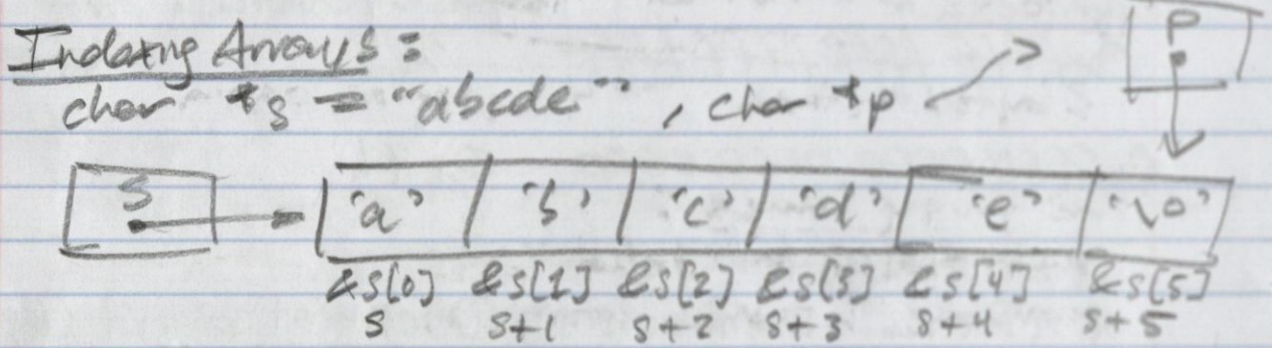 Indexing Arrays:
char *s = "abcde", char *p
p
s
'a' 'b' 'c' 'd' 'e' '\0'
&s[0] &s[1] &s[2] &s[3] &s[4] &s[5]
s s+1 s+2 s+3 s+4 s+5